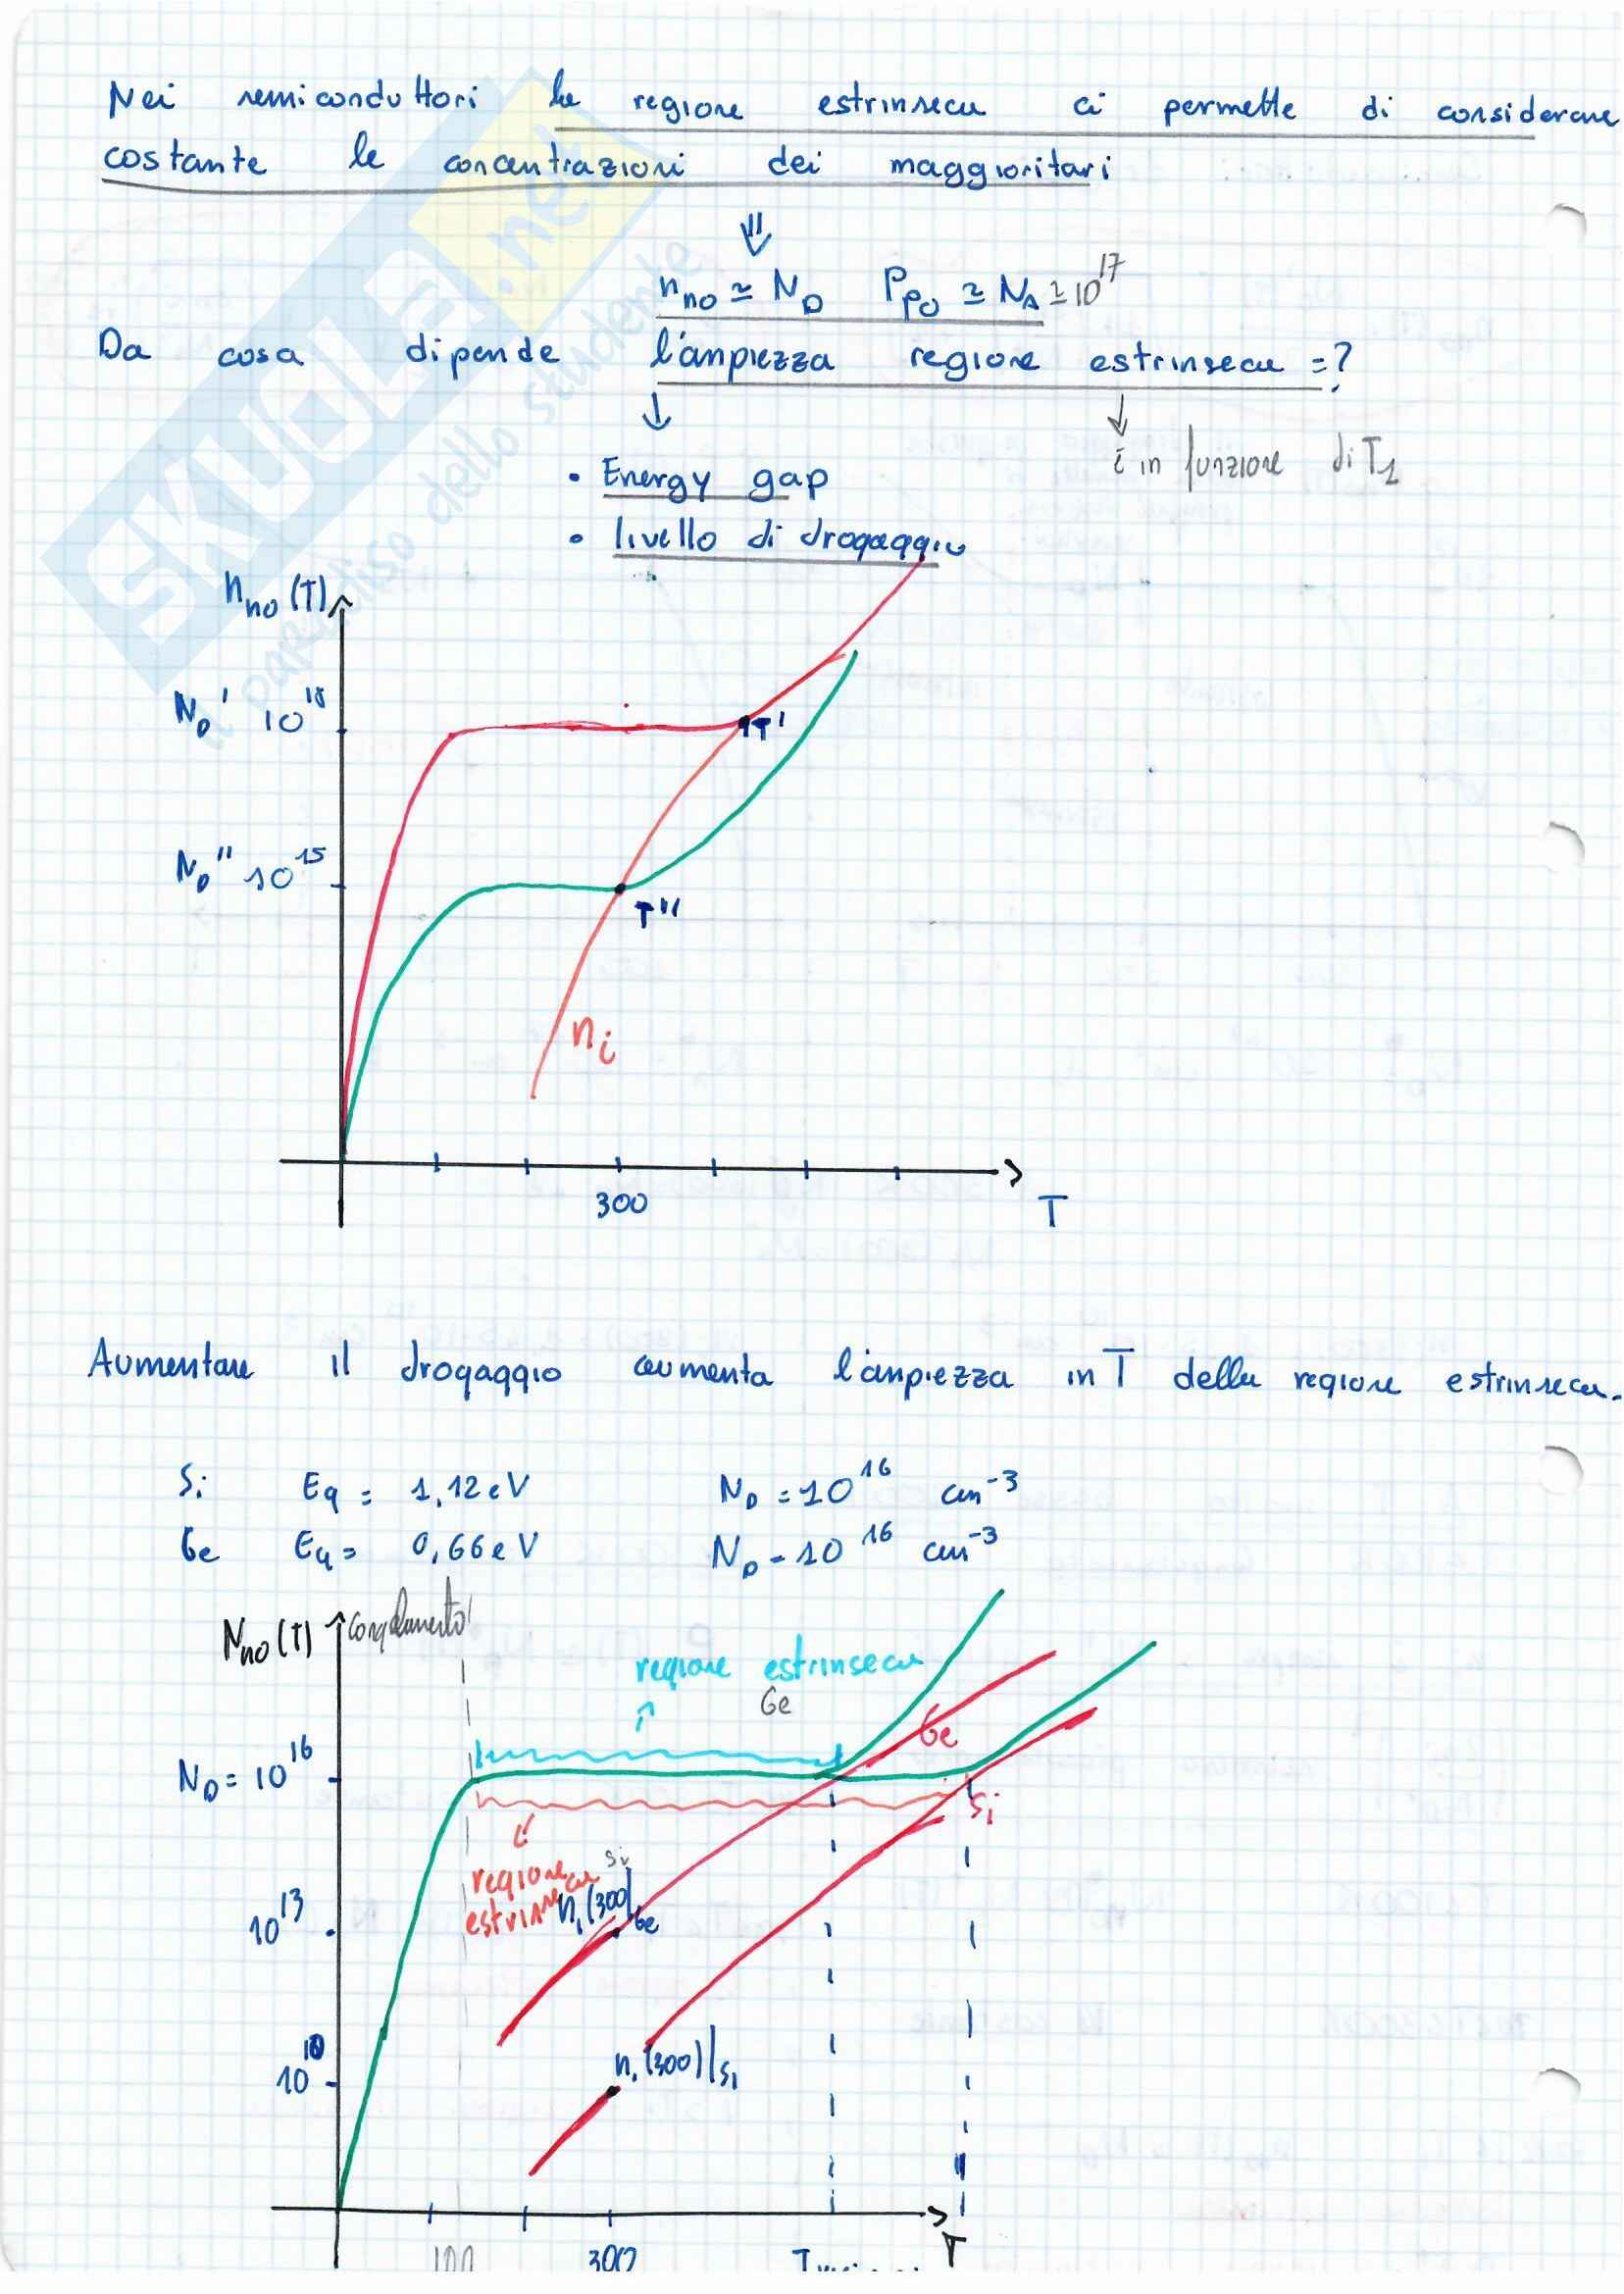 Nei semiconduttori la regione estrinseca ci permette di considerare
costante le concentrazioni dei maggioritari
n_no ≃ N_D   P_po ≃ N_A ≃ 10^17
Da cosa dipende l'ampiezza regione estrinseca =?
è in funzione di T_1
• Energy gap
• livello di drogaggio
n_no (T)
N_D' 10^18
T'
N_D'' 10^15
T''
n_i
300
T
Aumentare il drogaggio aumenta l'ampiezza in T della regione estrinseca.
Si   Eg = 1,12 eV   N_D = 10^16 cm^-3
Ge   Eg = 0,66 eV   N_D = 10^16 cm^-3
N_no (T)
congelamento
regione estrinseca
Ge
Ge
N_D = 10^16
Si
regione Si
estrinseca
n_i (300)|Ge
10^13
10^10
n_i (300)|Si
T
100
300
SKUOLA.net
il paradiso dello studente